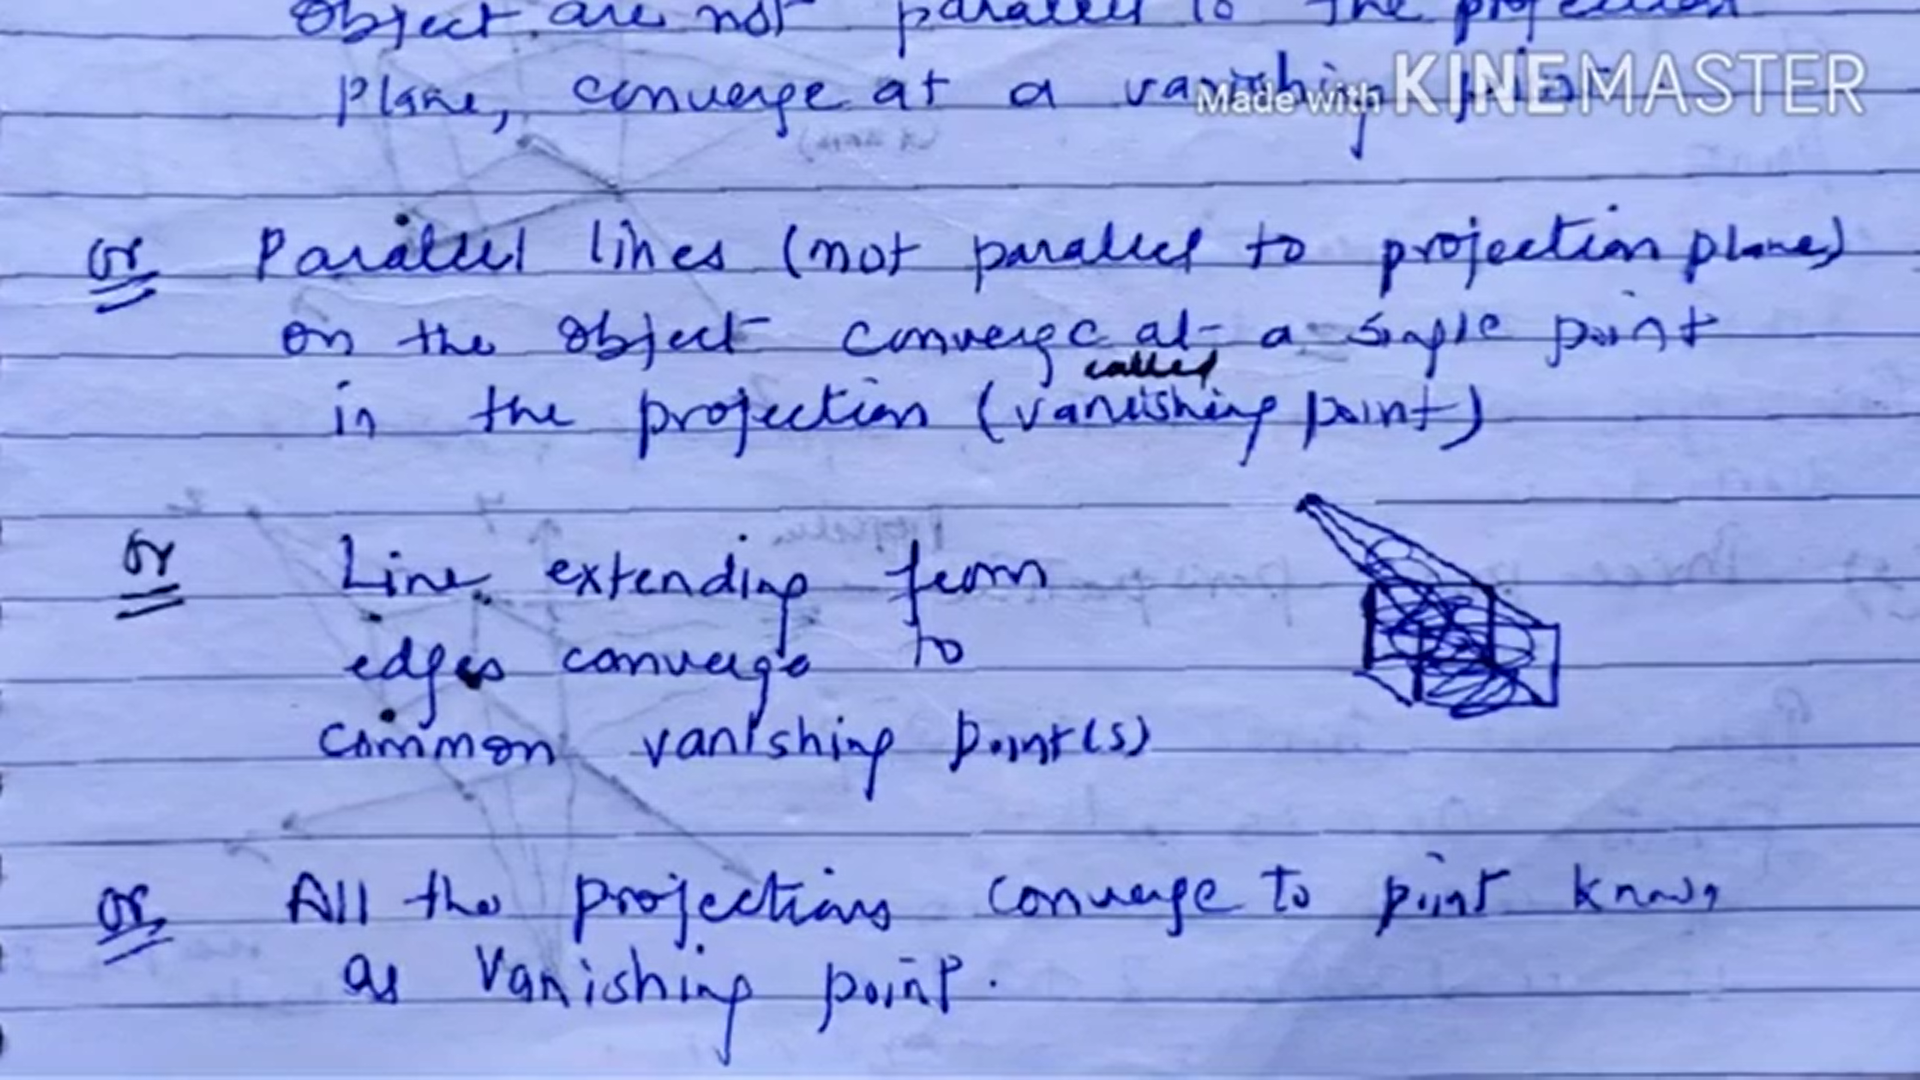 object are not parallel to the projection
plane, converge at a vanishing point
Made with KINEMASTER
or Parallel lines (not parallel to projection plane)
on the object converge at a single point
called
in the projection (vanishing point)
or Line extending from
edges converge to
common vanishing point(s)
or All the projections converge to point known
as Vanishing point.